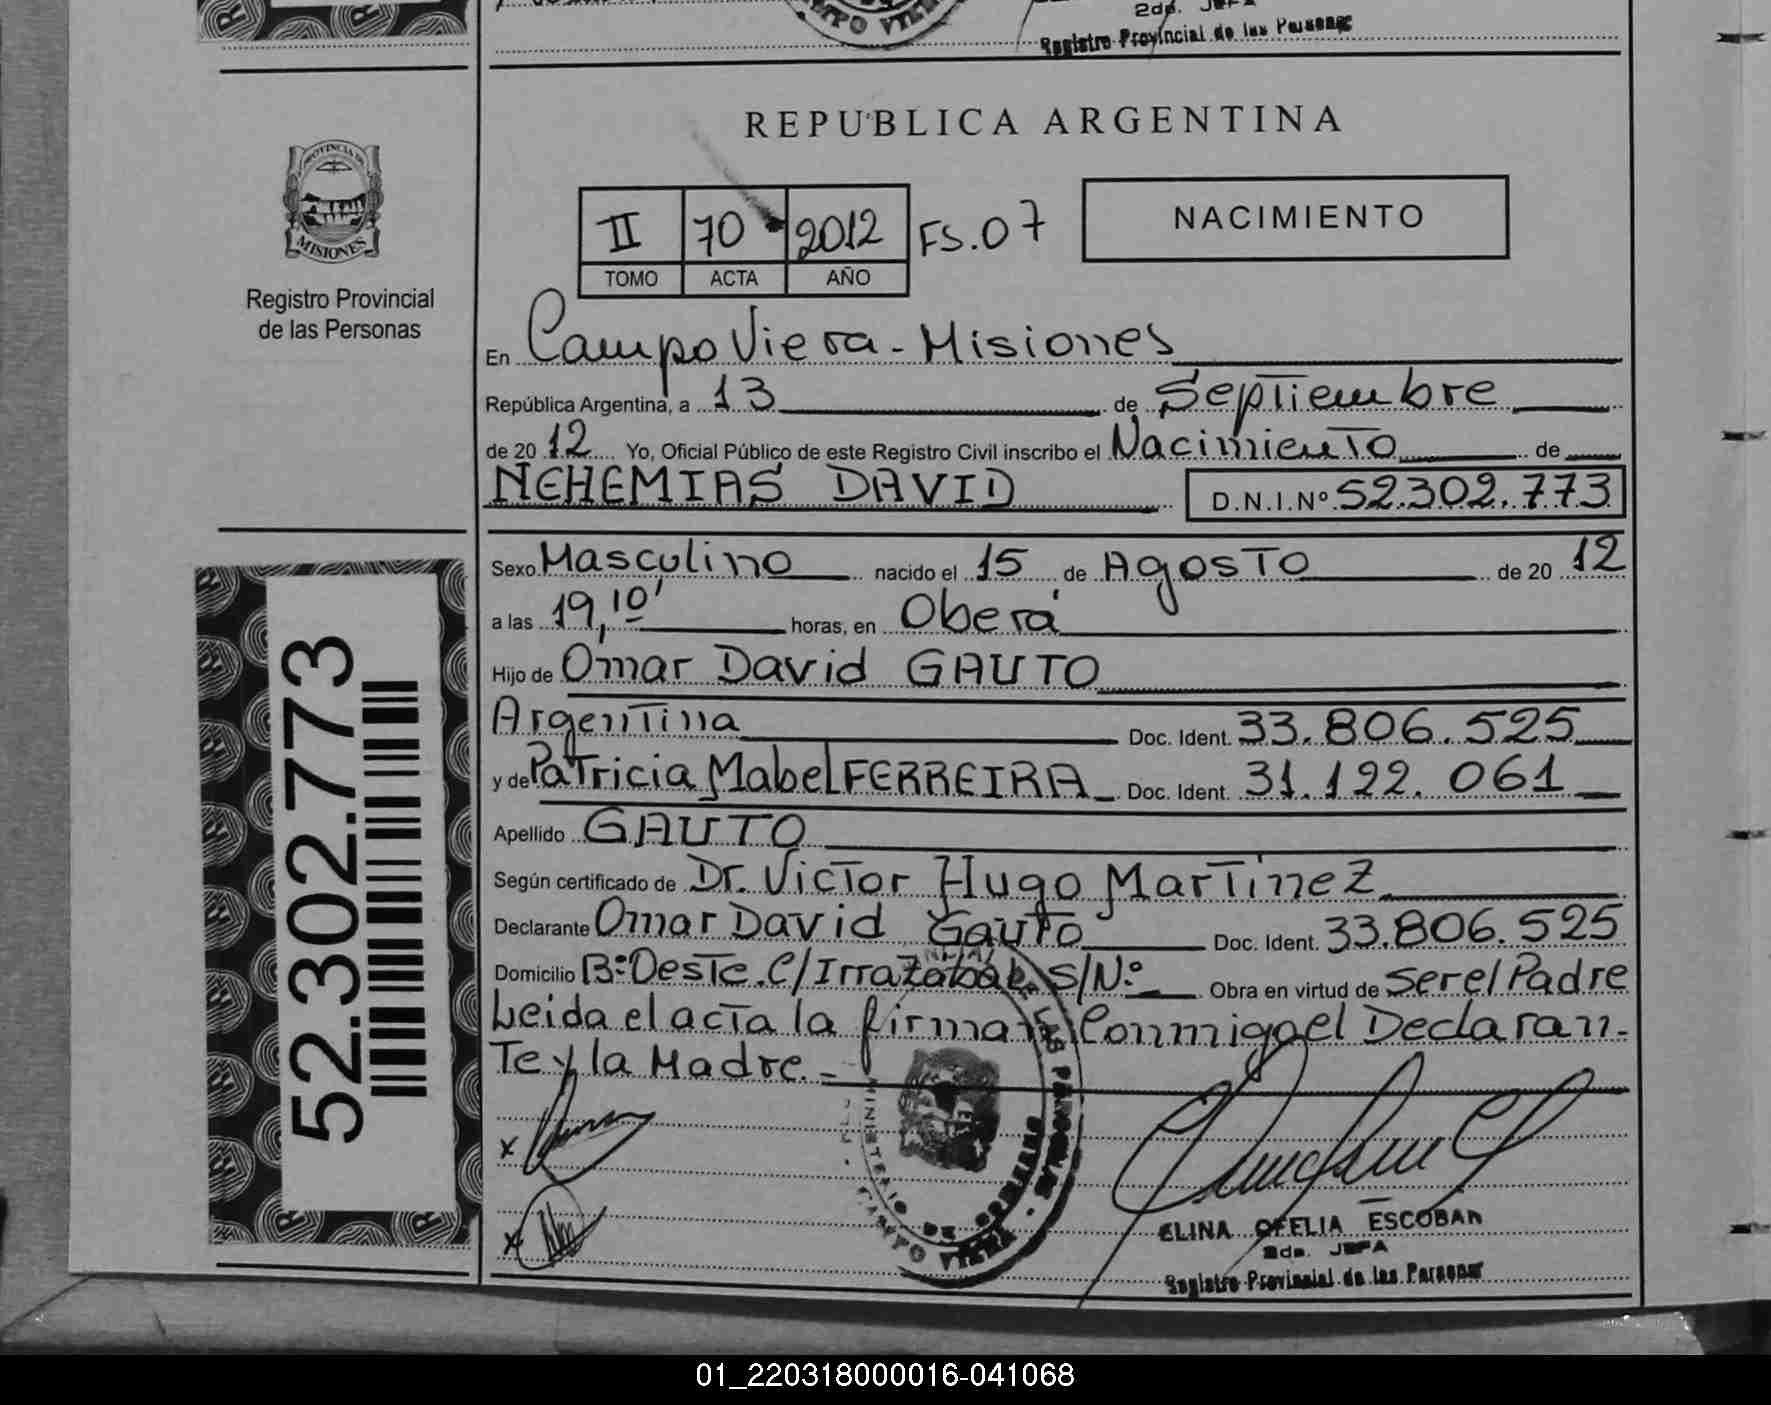 2da. JEFA
Registro Provincial de las Personas
REPUBLICA ARGENTINA
PROVINCIA DE
MISIONES
Registro Provincial
de las Personas
II 70 2012 FS.07
TOMO ACTA AÑO
NACIMIENTO
En Campo Viera - Misiones
República Argentina, a 13 de Septiembre
de 2012 Yo, Oficial Público de este Registro Civil inscribo el Nacimiento de
NEHEMIAS DAVID D.N.I.Nº 52.302.773
Sexo Masculino nacido el 15 de Agosto de 2012
a las 19,10' horas, en Oberá
Hijo de Omar David GAUTO
Argentina Doc. Ident. 33.806.525
y de Patricia Mabel FERREIRA Doc. Ident. 31.122.061
Apellido GAUTO
Según certificado de Dr. Victor Hugo Martinez
Declarante Omar David Gauto Doc. Ident. 33.806.525
Domicilio B:º Oeste C/ Irrazabal S/N:º Obra en virtud de ser el Padre
Leida el acta la firman Conmigo el Declaran-
te y la Madre. -
52.302.773
MINISTERIO DE GOBIERNO
CAMPO VIERA
ELINA OFELIA ESCOBAR
2da. JEFA
Registro Provincial de las Personas
01_220318000016-041068